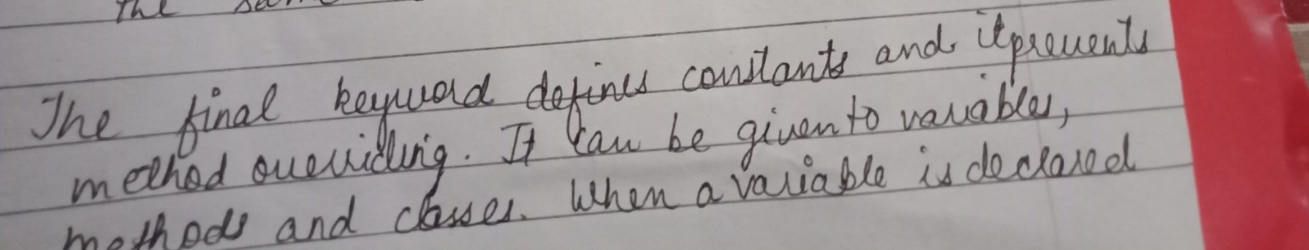 the same
The final keyword defines constants and it prevents
method overriding. It can be given to variables,
methods and classes. When a variable is declared